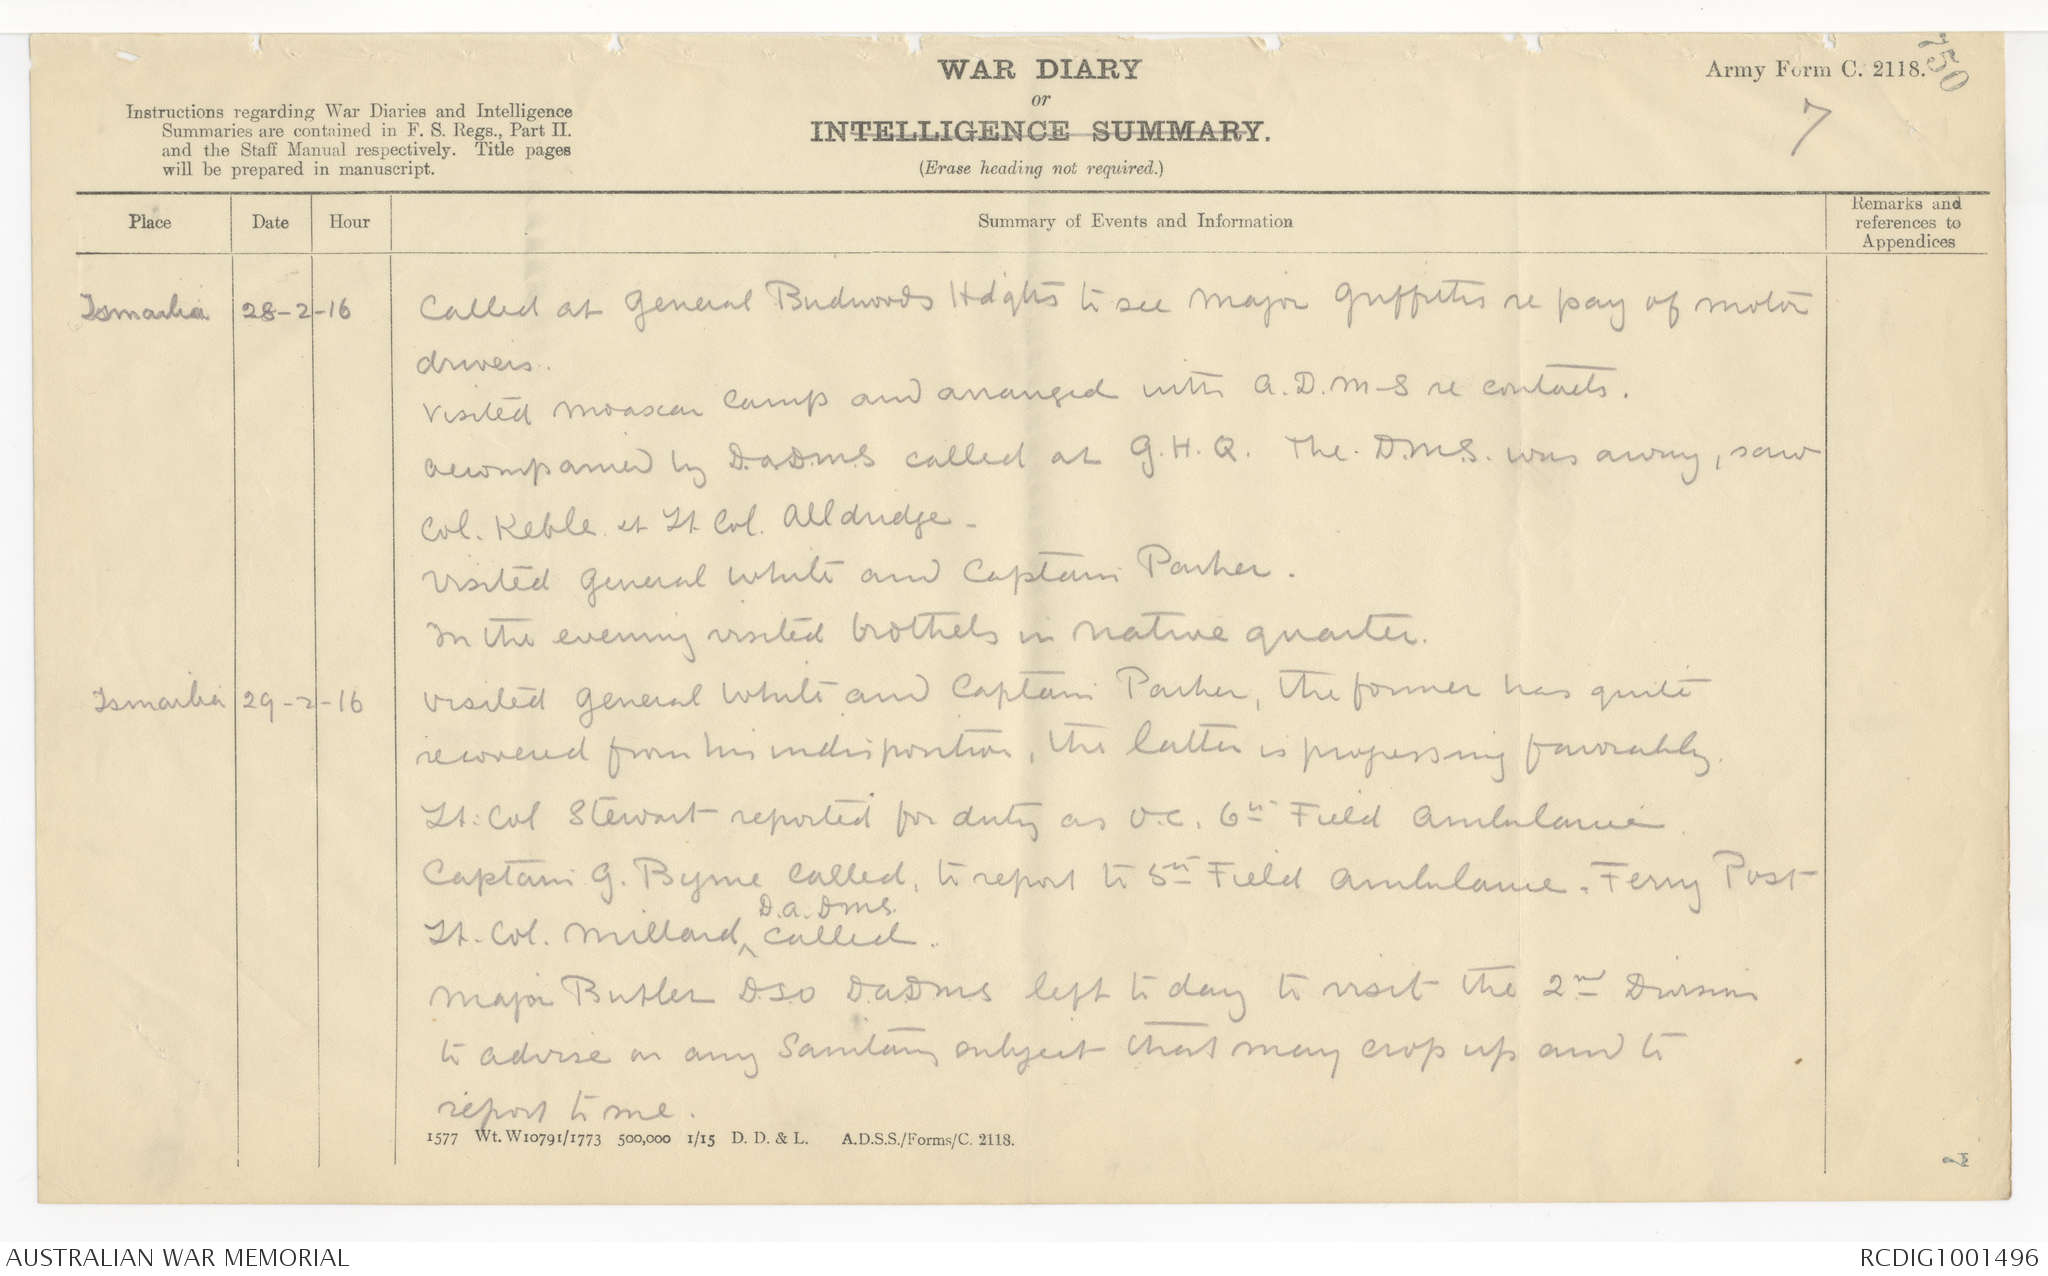 WAR DIARY
or
INTELLIGENCE SUMMARY.
(Erase heading not required.)
Army Form C. 2118.
750
7
Instructions regarding War Diaries and Intelligence
Summaries are contained in F. S. Regs., Part II.
and the Staff Manual respectively. Title pages
will be prepared in manuscript.
Place Date Hour Summary of Events and Information Remarks and references to Appendices
Ismailia 28-2-16 Called at General Birdwoods Hdqrts to see Major Griffiths re pay of motor
drivers.
Visited Moascar Camp and arranged with A.D.M-S re contacts.
accompanied by D.A.D.M.S called at G.H.Q. The D.M.S. was away, saw
Col. Keble et Lt Col. Alldridge -
Visited General White and Captain Parker.
In the evening visited brothels in native quarter.
Ismailia 29-2-16 Visited General White and Captain Parker, the former has quite
recovered from his indisposition, the latter is progressing favorably.
Lt. Col Stewart reported for duty as O.C. 6th Field Ambulance.
Captain G. Byrne called, to report to 5th Field Ambulance. Ferry Post
D.A.DMS.
Lt. Col. Millard, ^ called.
Major Butler D.S.O D.A.D.M.S left to day to visit the 2nd Division
to advise on any Sanitary subject that may crop up and to
report to me.
1577 Wt. W10791/1773 500,000 1/15 D. D. & L. A.D.S.S./Forms/C. 2118.
AUSTRALIAN WAR MEMORIAL
RCDIG1001496